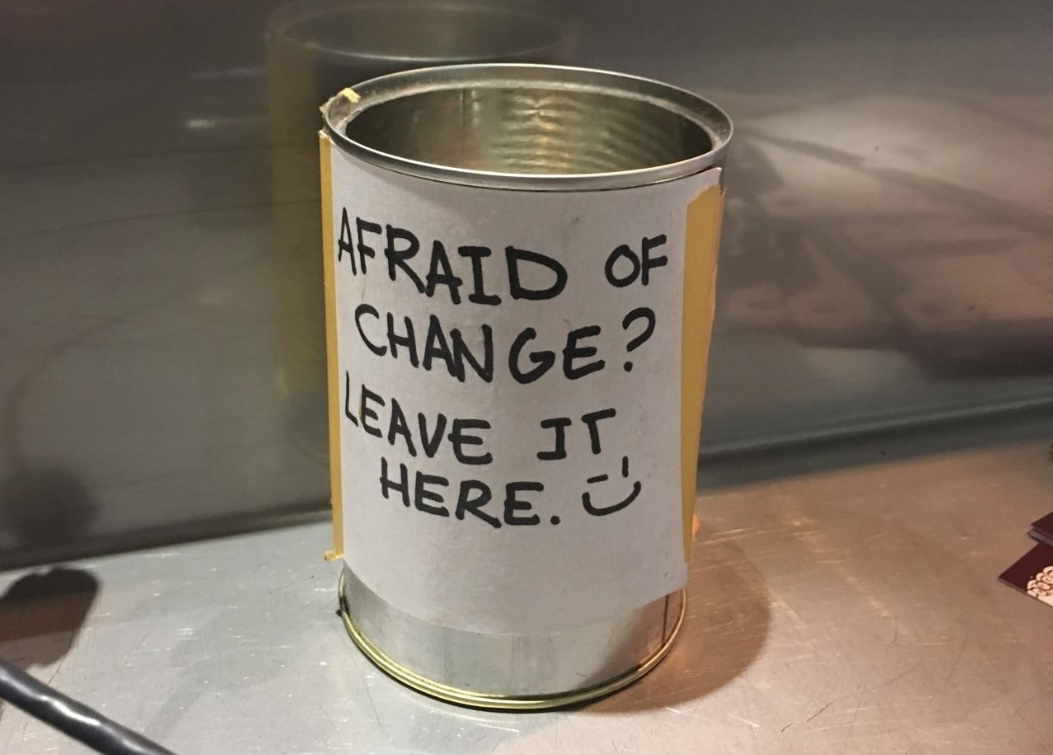 AFRAID OF
CHANGE?
LEAVE IT
HERE.